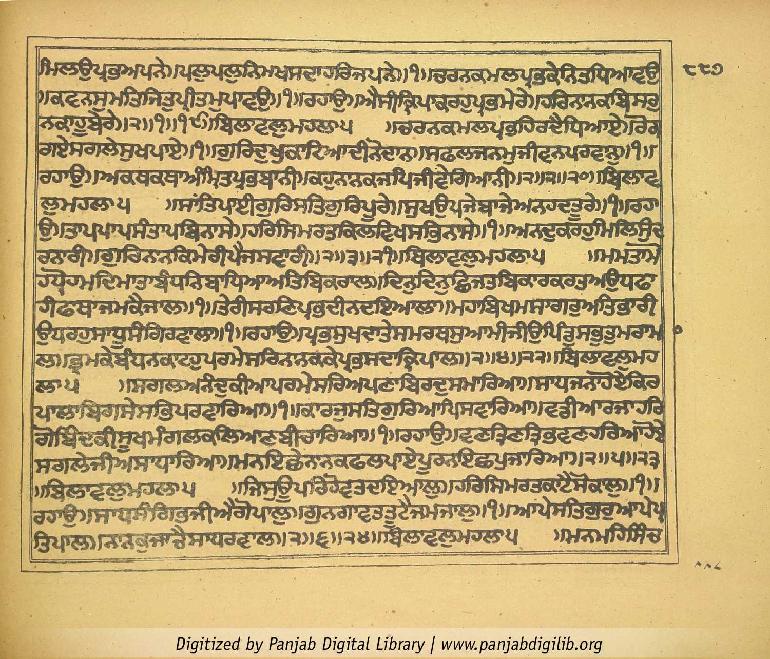 ਮਿਲਉਪ੍ਰਭਅਪਨੇ॥ਪਲੁਪਲੁਨਿਮਖਸਦਾਹਰਿਜਪਨੇ॥੧॥ਚਰਨਕਮਲਪ੍ਰਭਕੇਨਿਤਧਿਆਵਉ
॥ਕਵਨਸੁਮਤਿਜਿਤੁਪ੍ਰੀਤਮੁਪਾਵਉ॥੧॥ਰਹਾਉ॥ਐਸੀਕ੍ਰਿਪਾਕਰਹੁਪ੍ਰਭਮੇਰੇ॥ਹਰਿਨਾਨਕਬਿਸਰੁ
ਨਕਾਹੂਬੇਰੇ॥੨॥੧॥੧੯॥ਬਿਲਾਵਲੁਮਹਲਾ੫ ॥ਚਰਨਕਮਲਪ੍ਰਭਹਿਰਦੈਧਿਆਏ॥ਰੋਗ
ਗਏਸਗਲੇਸੁਖਪਾਏ॥੧॥ਗੁਰਿਦੁਖੁਕਾਟਿਆਦੀਨੋਦਾਨੁ॥ਸਫਲਜਨਮੁਜੀਵਨਪਰਵਾਨੁ॥੧॥
ਰਹਾਉ॥ਅਕਥਕਥਾਅੰਮ੍ਰਿਤਪ੍ਰਭਬਾਨੀ॥ਕਹੁਨਾਨਕਜਪਿਜੀਵੇਗਿਆਨੀ॥੨॥੨॥੨੦॥ਬਿਲਾਵ
ਲੁਮਹਲਾ੫ ॥ਸਾਂਤਿਪਾਈਗੁਰਿਸਤਿਗੁਰਿਪੂਰੇ॥ਸੁਖਉਪਜੇਬਾਜੇਅਨਹਦਤੂਰੇ॥੧॥ਰਹਾ
ਉ॥ਤਾਪਪਾਪਸੰਤਾਪਬਿਨਾਸੇ॥ਹਰਿਸਿਮਰਤਕਿਲਵਿਖਸਭਿਨਾਸੇ॥੧॥ਅਨਦੁਕਰਹੁਮਿਲਿਸੁੰਦ
ਰਨਾਰੀ॥ਗੁਰਿਨਾਨਕਿਮੇਰੀਪੈਜਸਵਾਰੀ॥੨॥੩॥੨੧॥ਬਿਲਾਵਲੁਮਹਲਾ੫ ॥ਮਮਤਾਮੋ
ਹਧ੍ਰੋਹਮਦਿਮਾਤਾਬੰਧਨਿਬਾਧਿਆਅਤਿਬਿਕਰਾਲ॥ਦਿਨੁਦਿਨੁਛਿਜਤਬਿਕਾਰਕਰਤਅਉਧਫਾ
ਹੀਫਾਥਾਜਮਕੈਜਾਲ॥੧॥ਤੇਰੀਸਰਣਿਪ੍ਰਭਦੀਨਦਇਆਲਾ॥ਮਹਾਬਿਖਮਸਾਗਰੁਅਤਿਭਾਰੀ
ਉਧਰਹੁਸਾਧੂਸੰਗਿਰਵਾਲਾ॥੧॥ਰਹਾਉ॥ਪ੍ਰਭਸੁਖਦਾਤੇਸਮਰਥਸੁਆਮੀਜੀਉਪਿੰਡੁਸਭੁਤੁਮਰਾਮਾ
ਲ॥ਭ੍ਰਮਕੇਬੰਧਨਕਾਟਹੁਪਰਮੇਸਰਨਾਨਕਕੇਪ੍ਰਭਸਦਾਕ੍ਰਿਪਾਲ॥੨॥੪॥੨੨॥ਬਿਲਾਵਲੁਮਹ
ਲਾ੫ ॥ਸਗਲਅਨੰਦੁਕੀਆਪਰਮੇਸਰਿਅਪਣਾਬਿਰਦੁਸਮਾਰਿਆ॥ਸਾਧਜਨਾਹੋਏਕਿਰ
ਪਾਲਾਬਿਗਸੇਸਭਿਪਰਵਾਰਿਆ॥੧॥ਕਾਰਜੁਸਤਿਗੁਰਿਆਪਿਸਵਾਰਿਆ॥ਵਡੀਆਰਜਾਹਰਿ
ਗੋਬਿੰਦਕੀਸੂਖਮੰਗਲਕਲਿਆਣਬੀਚਾਰਿਆ॥੧॥ਰਹਾਉ॥ਵਣਤ੍ਰਿਣਤ੍ਰਿਭਵਣਹਰਿਆਹੋਏ
ਸਗਲੇਜੀਅਸਾਧਾਰਿਆ॥ਮਨਇਛੇਨਾਨਕਫਲਪਾਏਪੂਰਨਇਛਪੁਜਾਰਿਆ॥੨॥੫॥੨੩
॥ਬਿਲਾਵਲੁਮਹਲਾ੫ ॥ਜਿਸੁਊਪਰਿਹੋਵਤਦਇਆਲੁ॥ਹਰਿਸਿਮਰਤਕਾਟੈਸੋਕਾਲੁ॥੧॥
ਰਹਾਉ॥ਸਾਧਸੰਗਿਭਜੀਐਗੋਪਾਲੁ॥ਗੁਨਗਾਵਤਤੂਟੈਜਮਜਾਲੁ॥੧॥ਆਪੇਸਤਿਗੁਰੁਆਪੇਪ੍ਰ
ਤਿਪਾਲ॥ਨਾਨਕੁਜਾਚੈਸਾਧਰਵਾਲ॥੨॥੬॥੨੪॥ਬਿਲਾਵਲੁਮਹਲਾ੫ ॥ਮਨਮਹਿਸਿੰਚ
Digitized by Panjab Digital Library | www.panjabdigilib.org